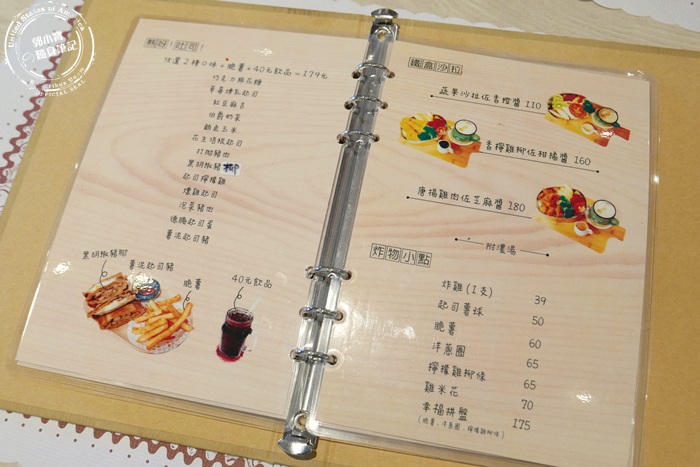 United States of America
郭小寶
隨食筆記
OFFICIAL SEAL
熱好!吐司!
任選2種口味+脆薯+40元飲品=179元
巧克力棉花糖
草莓煉乳起司
紅豆麻吉
伯爵奶茶
鮪魚玉米
花生培根起司
打拋豬肉
黑胡椒豬柳
起司檸檬雞
燻雞起司
泡菜豬肉
德腸起司蛋
薯泥起司豬
黑胡椒豬柳
薯泥起司豬
脆薯
40元飲品
鐵盒沙拉
蔬果沙拉佐香橙醬 110
香檸雞柳佐柑橘醬 160
唐揚雞肉佐芝麻醬 180
附濃湯
炸物小點
炸雞(1支) 39
起司薯球 50
脆薯 60
洋蔥圈 65
檸檬雞柳條 65
雞米花 70
幸福拼盤 175
(脆薯、洋蔥圈、檸檬雞柳條)